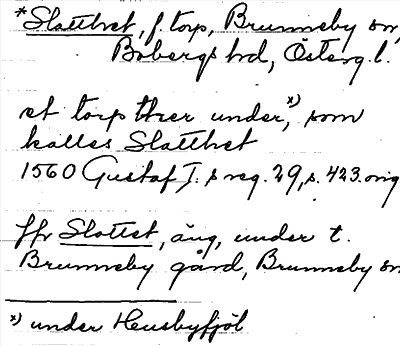 *Slatthet, f. torp, Brunneby sn,
Bobergs hd, Österg. l.
et torp ther under,x) som
kalles Slatthet
1560 Gustaf I:s reg. 29, s. 423. orig
Jfr Slottet, äng, under t.
Brunneby gård, Brunneby sn
x) under Heusbyfjöl